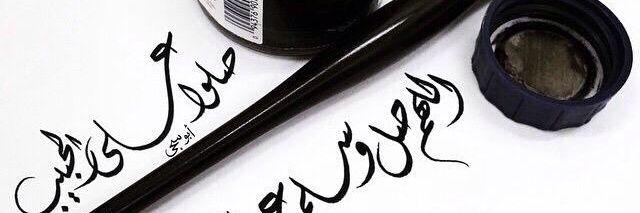 صلوا على الحبيب
أبو سجى
اللهم صل وسلم